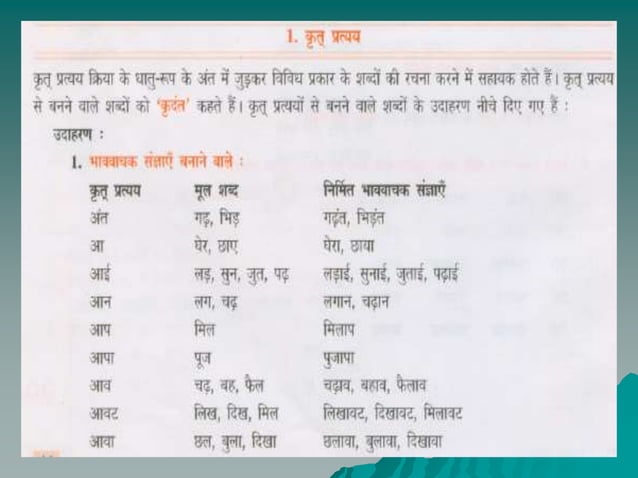 1. कृत् प्रत्यय
कृत् प्रत्यय क्रिया के धातु-रूप के अंत में जुड़कर विविध प्रकार के शब्दों की रचना करने में सहायक होते हैं। कृत् प्रत्यय
से बनने वाले शब्दों को 'कृदंत' कहते हैं। कृत् प्रत्ययों से बनने वाले शब्दों के उदाहरण नीचे दिए गए हैं :
उदाहरण :
1. भाववाचक संज्ञाएँ बनाने वाले :
कृत् प्रत्यय मूल शब्द निर्मित भाववाचक संज्ञाएँ
अंत गढ़, भिड़ गढ़ंत, भिड़ंत
आ घेर, छाए घेरा, छाया
आई लड़, सुन, जुत, पढ़ लड़ाई, सुनाई, जुताई, पढ़ाई
आन लग, चढ़ लगान, चढ़ान
आप मिल मिलाप
आपा पूज पुजापा
आव चढ़, बह, फैल चढ़ाव, बहाव, फैलाव
आवट लिख, दिख, मिल लिखावट, दिखावट, मिलावट
आवा छल, बुला, दिखा छलावा, बुलावा, दिखावा